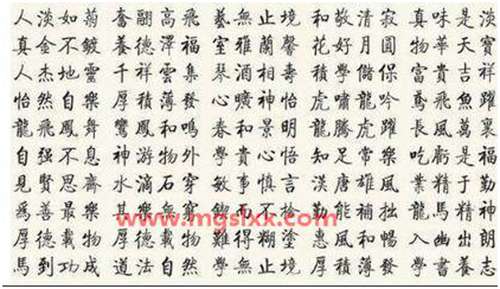 人淡如菊 奮翮高飛 藝無止境 和敬清寂 真味是淡
真金不鍍 養德澤福 室雅蘭馨 花好月圓 物華天寶
人杰地靈 千祥雲集 琴酒相壽 積學儲 富貴吉祥
怡然自樂 厚積薄發 心曠神怡 虎嘯龍吟 鳶飛魚躍
龍飛鳳舞 鸞鳳和鳴 春和景明 龍騰虎躍 長風萬裏
自强不息 神游物外 學貴心悟 知足常樂 吃虧是福
見賢思齋 水滴石穿 敏事慎言 漢唐雄風 業精于勤
爲善最樂 其樂無窮 學而不捨 勤能補拙 龍馬精神
厚德載物 厚德載物 難得糊塗 惠風和暢 入幽出朗
馬到功成 道法自然 學無止境 厚積薄發 學書養志
www.mgslxx.com